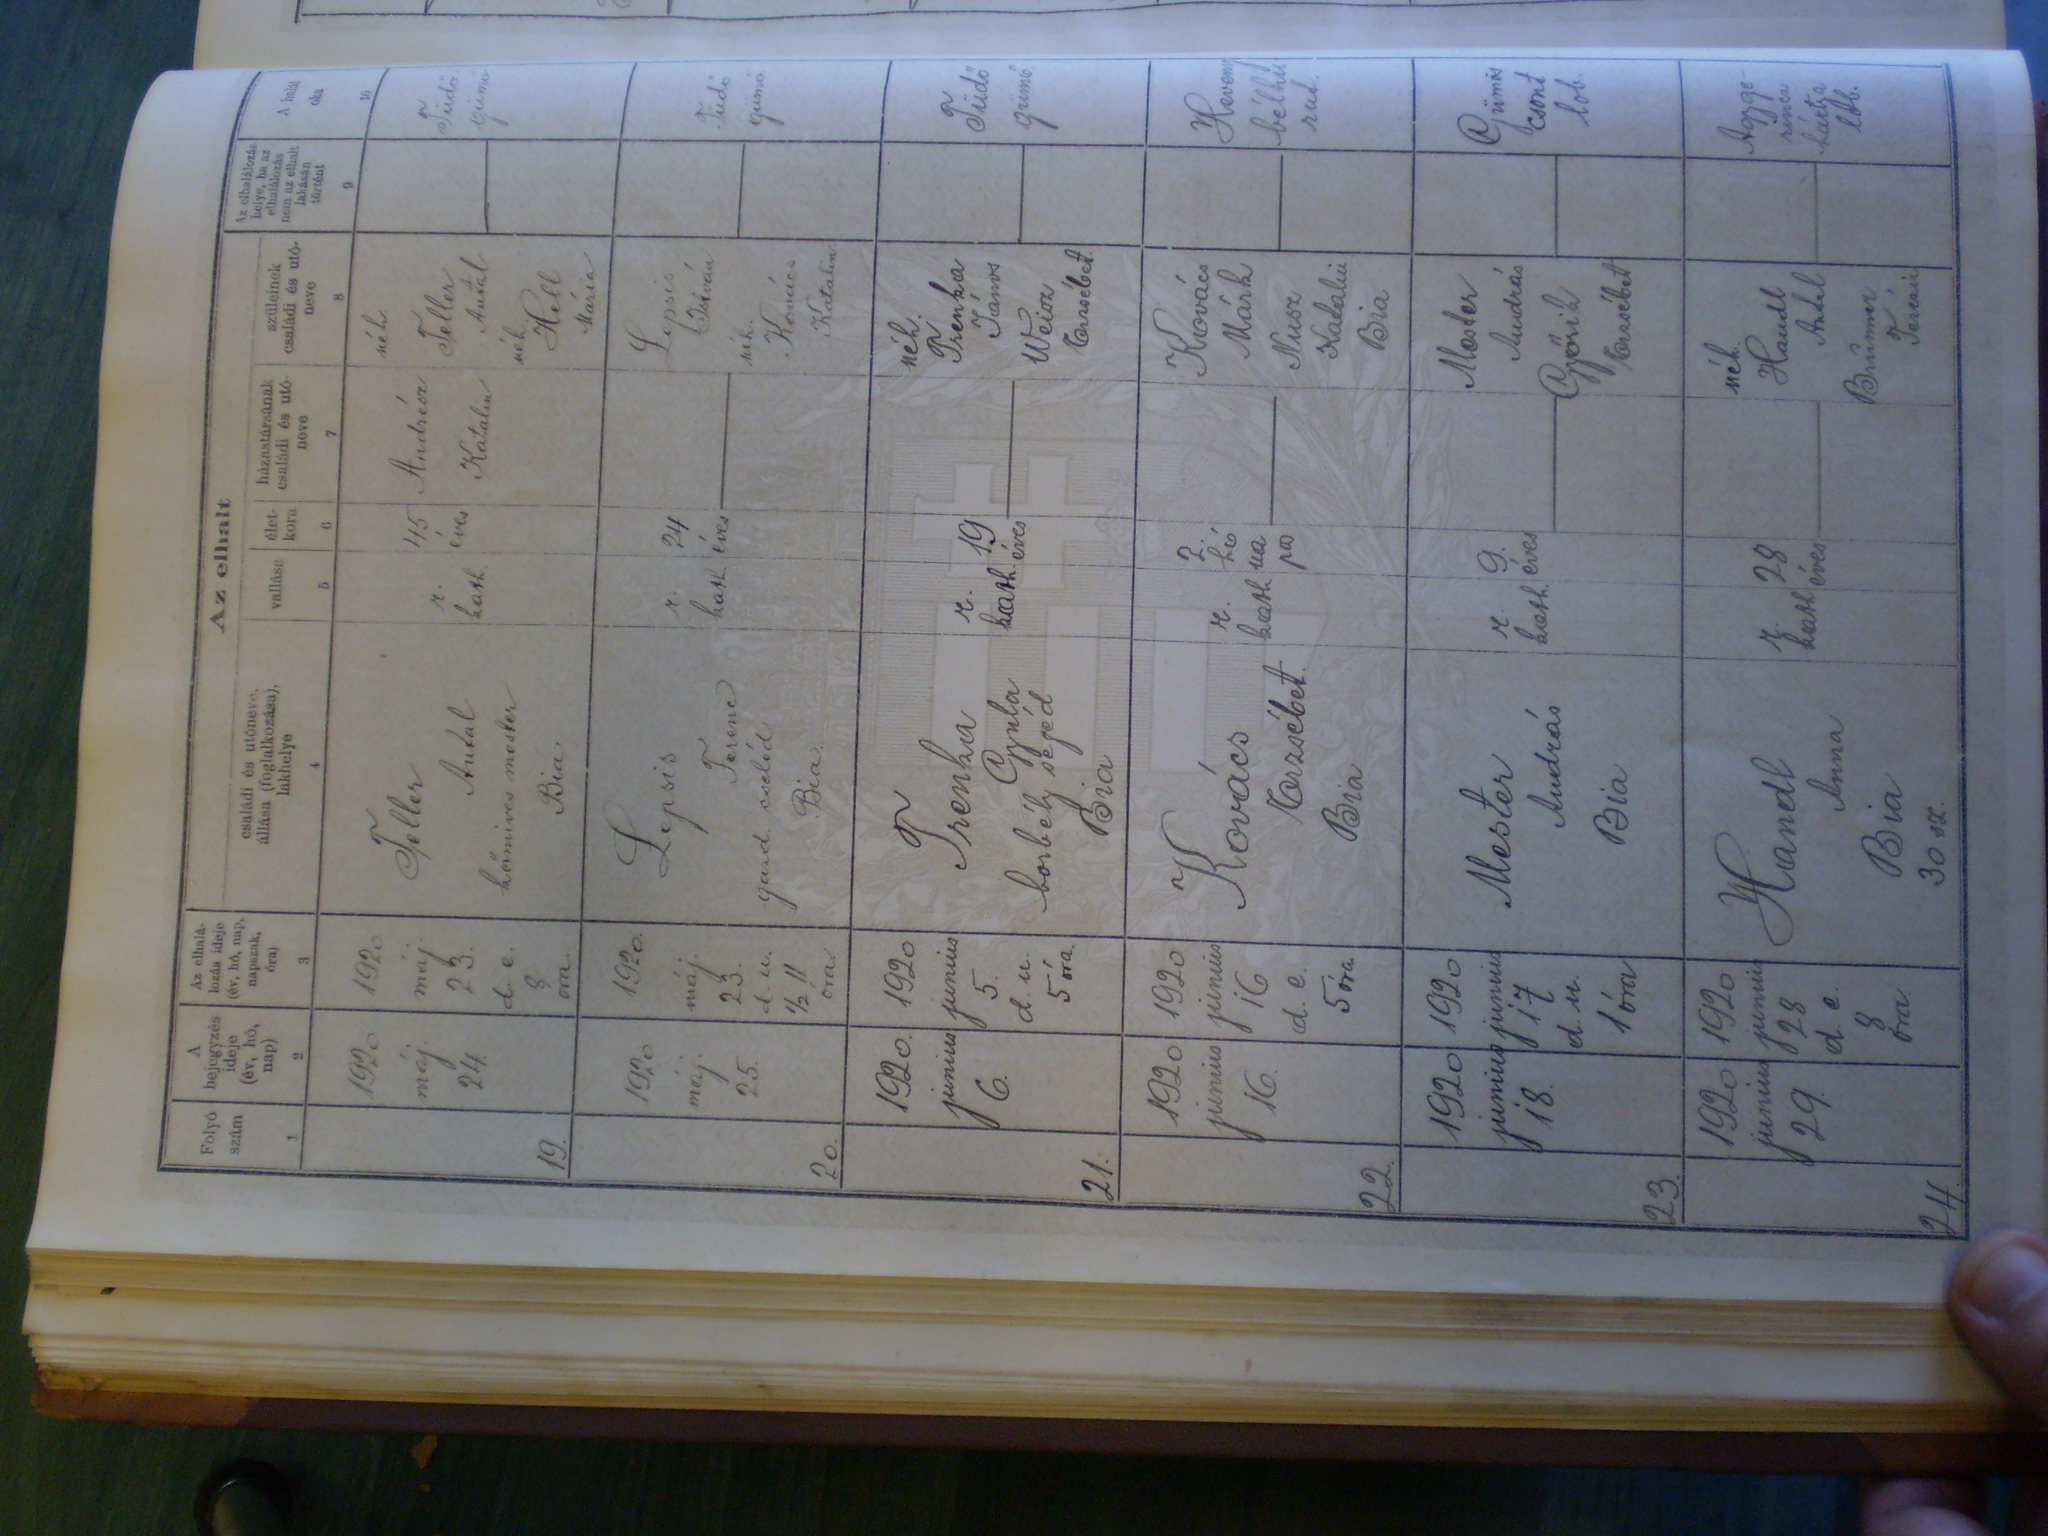 Az elhalt
Folyó
szám
A
bejegyzés
ideje
(év, hó,
nap)
Az elhalá-
lozás ideje
(év, hó, nap,
napszak,
óra)
családi és utóneve,
állása (foglalkozása),
lakhelye
vallása
élet-
kora
házastársának
családi és utó-
neve
szüleinek
családi és utó-
neve
Az elhalálozás
helye, ha az
elhalálozás
nem az elhalt
lakásán
történt
A halál
oka
1
2
3
4
5
6
7
8
9
10
19.
1920
máj.
24.
1920
máj.
23.
d. e.
8
óra.
Feller
Antal
kőmives mester
Bia
r.
kath.
45
éves
Andrész
Katalin
néh.
Feller
Antal
néh.
Hell
Mária
Tüdő
gümő
20.
1920
máj.
25.
1920.
máj.
23.
d. u.
½ 11
óra
Lepsis
Ferenc
gazd. cseléd
Bia.
r.
kath.
24
éves
Lepsis
István
néh.
Kovács
Katalin
Tüdő
gümő
21.
1920.
junius
6.
1920
junius
5.
d. u.
5 óra.
Trenka
Gyula
borbély segéd
Bia
r.
kath.
19
éves
néh.
Trenka
János
Weisz
Erzsébet
Tüdő
gümő
22.
1920
junius
16.
1920
junius
16
d. e.
5 óra
Kovács
Erzsébet
Bia
r.
kath
2.
hó
na
pos
Kovács
Márk
Nusz
Katalin
Bia
Heveny
bélhu
rut.
23.
1920
junius
18.
1920
junius
17
d. u.
1 óra
Mester
András
Bia
r.
kath.
9.
éves
Mester
András
Győrik
Erzsébet
Gümős
csont
lob.
24.
1920
junius
29.
1920
junius
28
d. e.
8
óra.
Handl
Anna
Bia
30 sz.
r.
kath
28
éves
néh.
Handl
Antal
Brunner
Terézia
hártya
lob.